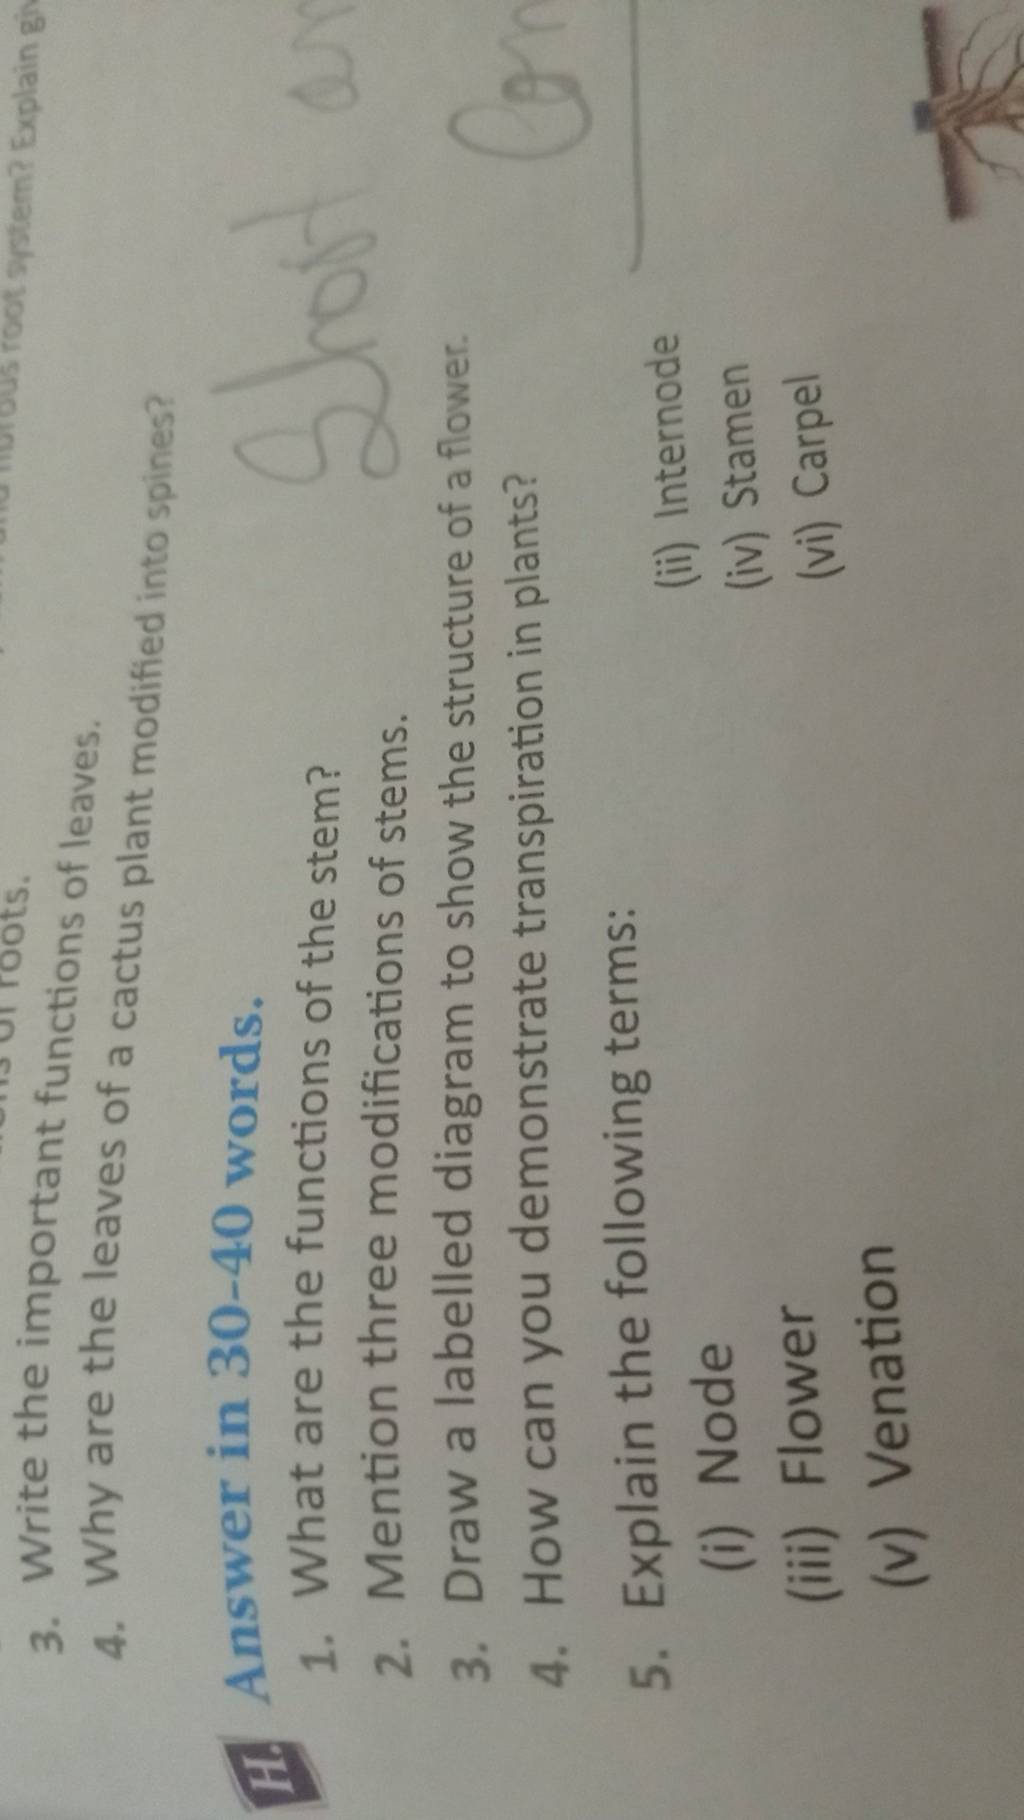 root system? Explain
roots.
3. Write the important functions of leaves.
4. Why are the leaves of a cactus plant modified into spines?
H. Answer in 30-40 words.
Short
1. What are the functions of the stem?
2. Mention three modifications of stems.
3. Draw a labelled diagram to show the structure of a flower.
4. How can you demonstrate transpiration in plants?
5. Explain the following terms:
(i) Node (ii) Internode
(iii) Flower (iv) Stamen
(v) Venation (vi) Carpel